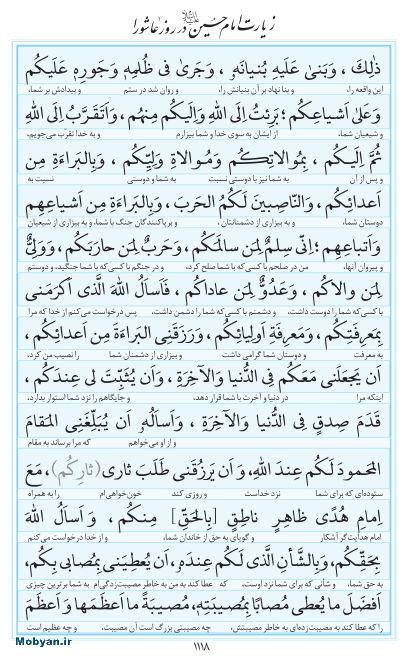 زیارت امام حسین علیه‌السلام در روز عاشورا
ذٰلِكَ ، وَبَنىٰ عَلَيهِ بُنيانَهُ ، وَجَرىٰ في ظُلمِهٖ وَجَورِهٖ عَلَيكُم
این واقعه را، و بنا نهاد بر آن بنیانش را، و روان شد در ستم و بیدادش بر شما،
وَعَلىٰ اَشياعِكُم ؛ بَرِئتُ اِلَى اللهِ وَاِلَيكُم مِنهُم ، وَاَتَقَرَّبُ اِلَى اللهِ
و شیعیان شما، از ایشان به سوی خدا و شما بیزارم و به خدا تقرّب می‌جویم،
ثُمَّ اِلَيكُم ، بِمُوالاتِكُم وَمُوالاةِ وَلِيِّكُم ، وَبِالبَراءَةِ مِن
و پس از آن به شما نیز با دوستی نسبت به شما و دوستی نسبت به
اَعدائِكُم ، وَالنّاصِبينَ لَكُمُ الحَربَ ، وَبِالبَراءَةِ مِن اَشياعِهِم
دوستان شما، و به بیزاری از دشمنانتان ، و برپاکنندگان جنگ با شما، و به بیزاری از شیعیان
وَاَتباعِهِم ؛ اِنّي سِلمٌ لِمَن سالَمَكُم ، وَحَربٌ لِمَن حارَبَكُم ، وَوَلِيٌّ
و پیروان آنها، من در صلحم با کسی که با شما صلح کرد، و در جنگم با کسی که با شما جنگید، و دوستم
لِمَن والاكُم ، وَعَدُوٌّ لِمَن عاداكُم ، فَاَسأَلُ اللهَ الَّذي اَكرَمَني
با کسی که شما را دوست داشت، و دشمنم با کسی که شما را دشمن داشت. پس درخواست می‌کنم از خدا که مرا
بِمَعرِفَتِكُم ، وَمَعرِفَةِ اَولِيائِكُم ، وَرَزَقَنِي البَراءَةَ مِن اَعدائِكُم ،
به معرفت و دوستان شما گرامی داشت و بیزاری از دشمنان شما را نصیب من کرد،
اَن يَجعَلَني مَعَكُم فِي الدُّنيا وَالآخِرَةِ ، وَاَن يُثَبِّتَ لي عِندَكُم ،
اینکه مرا در دنیا و آخرت با شما قرار دهد، و جایگاهم را نزد شما استوار بدارد،
قَدَمَ صِدقٍ فِي الدُّنيا وَالآخِرَةِ ، وَاَسأَلُهُ اَن يُبَلِّغَنِي المَقامَ
و از او می‌خواهم که مرا برساند به مقام
المَحمودَ لَكُم عِندَ اللهِ، وَ اَن يَرزُقَني طَلَبَ ثاري (ثارِكُم) ، مَعَ
ستوده‌ای که برای شما نزد خداست و روزی کند خون‌خواهی‌ام را به همراه
اِمامِ هُدًى ظاهِرٍ ناطِقٍ [بِالحَقِّ] مِنكُم ، وَ اَسأَلُ اللهَ
امام هدایت‌گر آشکار و گویای به حق از خاندان شما، و از خدا درخواست می‌کنم
بِحَقِّكُم، وَبِالشَّأنِ الَّذي لَكُم عِندَهُ، اَن يُعطِيَني بِمُصابي بِكُم،
به حق شما، و شأنی که برای شما نزد اوست، که عطا کند به من به خاطر مصیبت‌زدگی‌ام به شما برترین چیزی
اَفضَلَ ما يُعطي مُصابًا بِمُصيبَتِهٖ، مُصيبَةً ما اَعظَمَها وَ اَعظَمَ
را که عطا کند به مصیبت زده‌ای به خاطر مصیبتش، چه مصیبتی بزرگ است آن مصیبت، و چه عظیم است
۱۱۱۸
Mobyan.ir